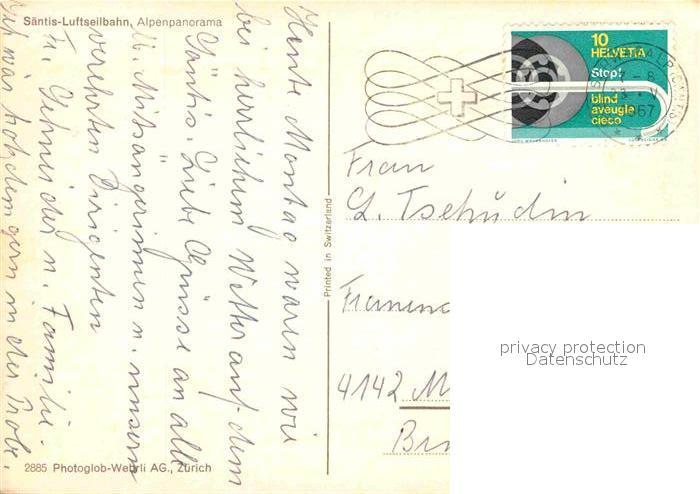 Säntis-Luftseilbahn, Alpenpanorama
Heute Montag waren wir
bei herrlichem Wetter auf dem
Säntis. Liebe Grüsse an alle
Mitsängerinnen u. unsern
verehrten Dirigenten
Fr. u. Familie.
Ich wär trotzdem gern in der Probe.
2885 Photoglob-Wehrli AG., Zürich
Printed in Switzerland
10
HELVETIA
Stop!
blind
aveugle
cieco
67
Frau
L. Tschudin
4142 M
privacy protection
Datenschutz